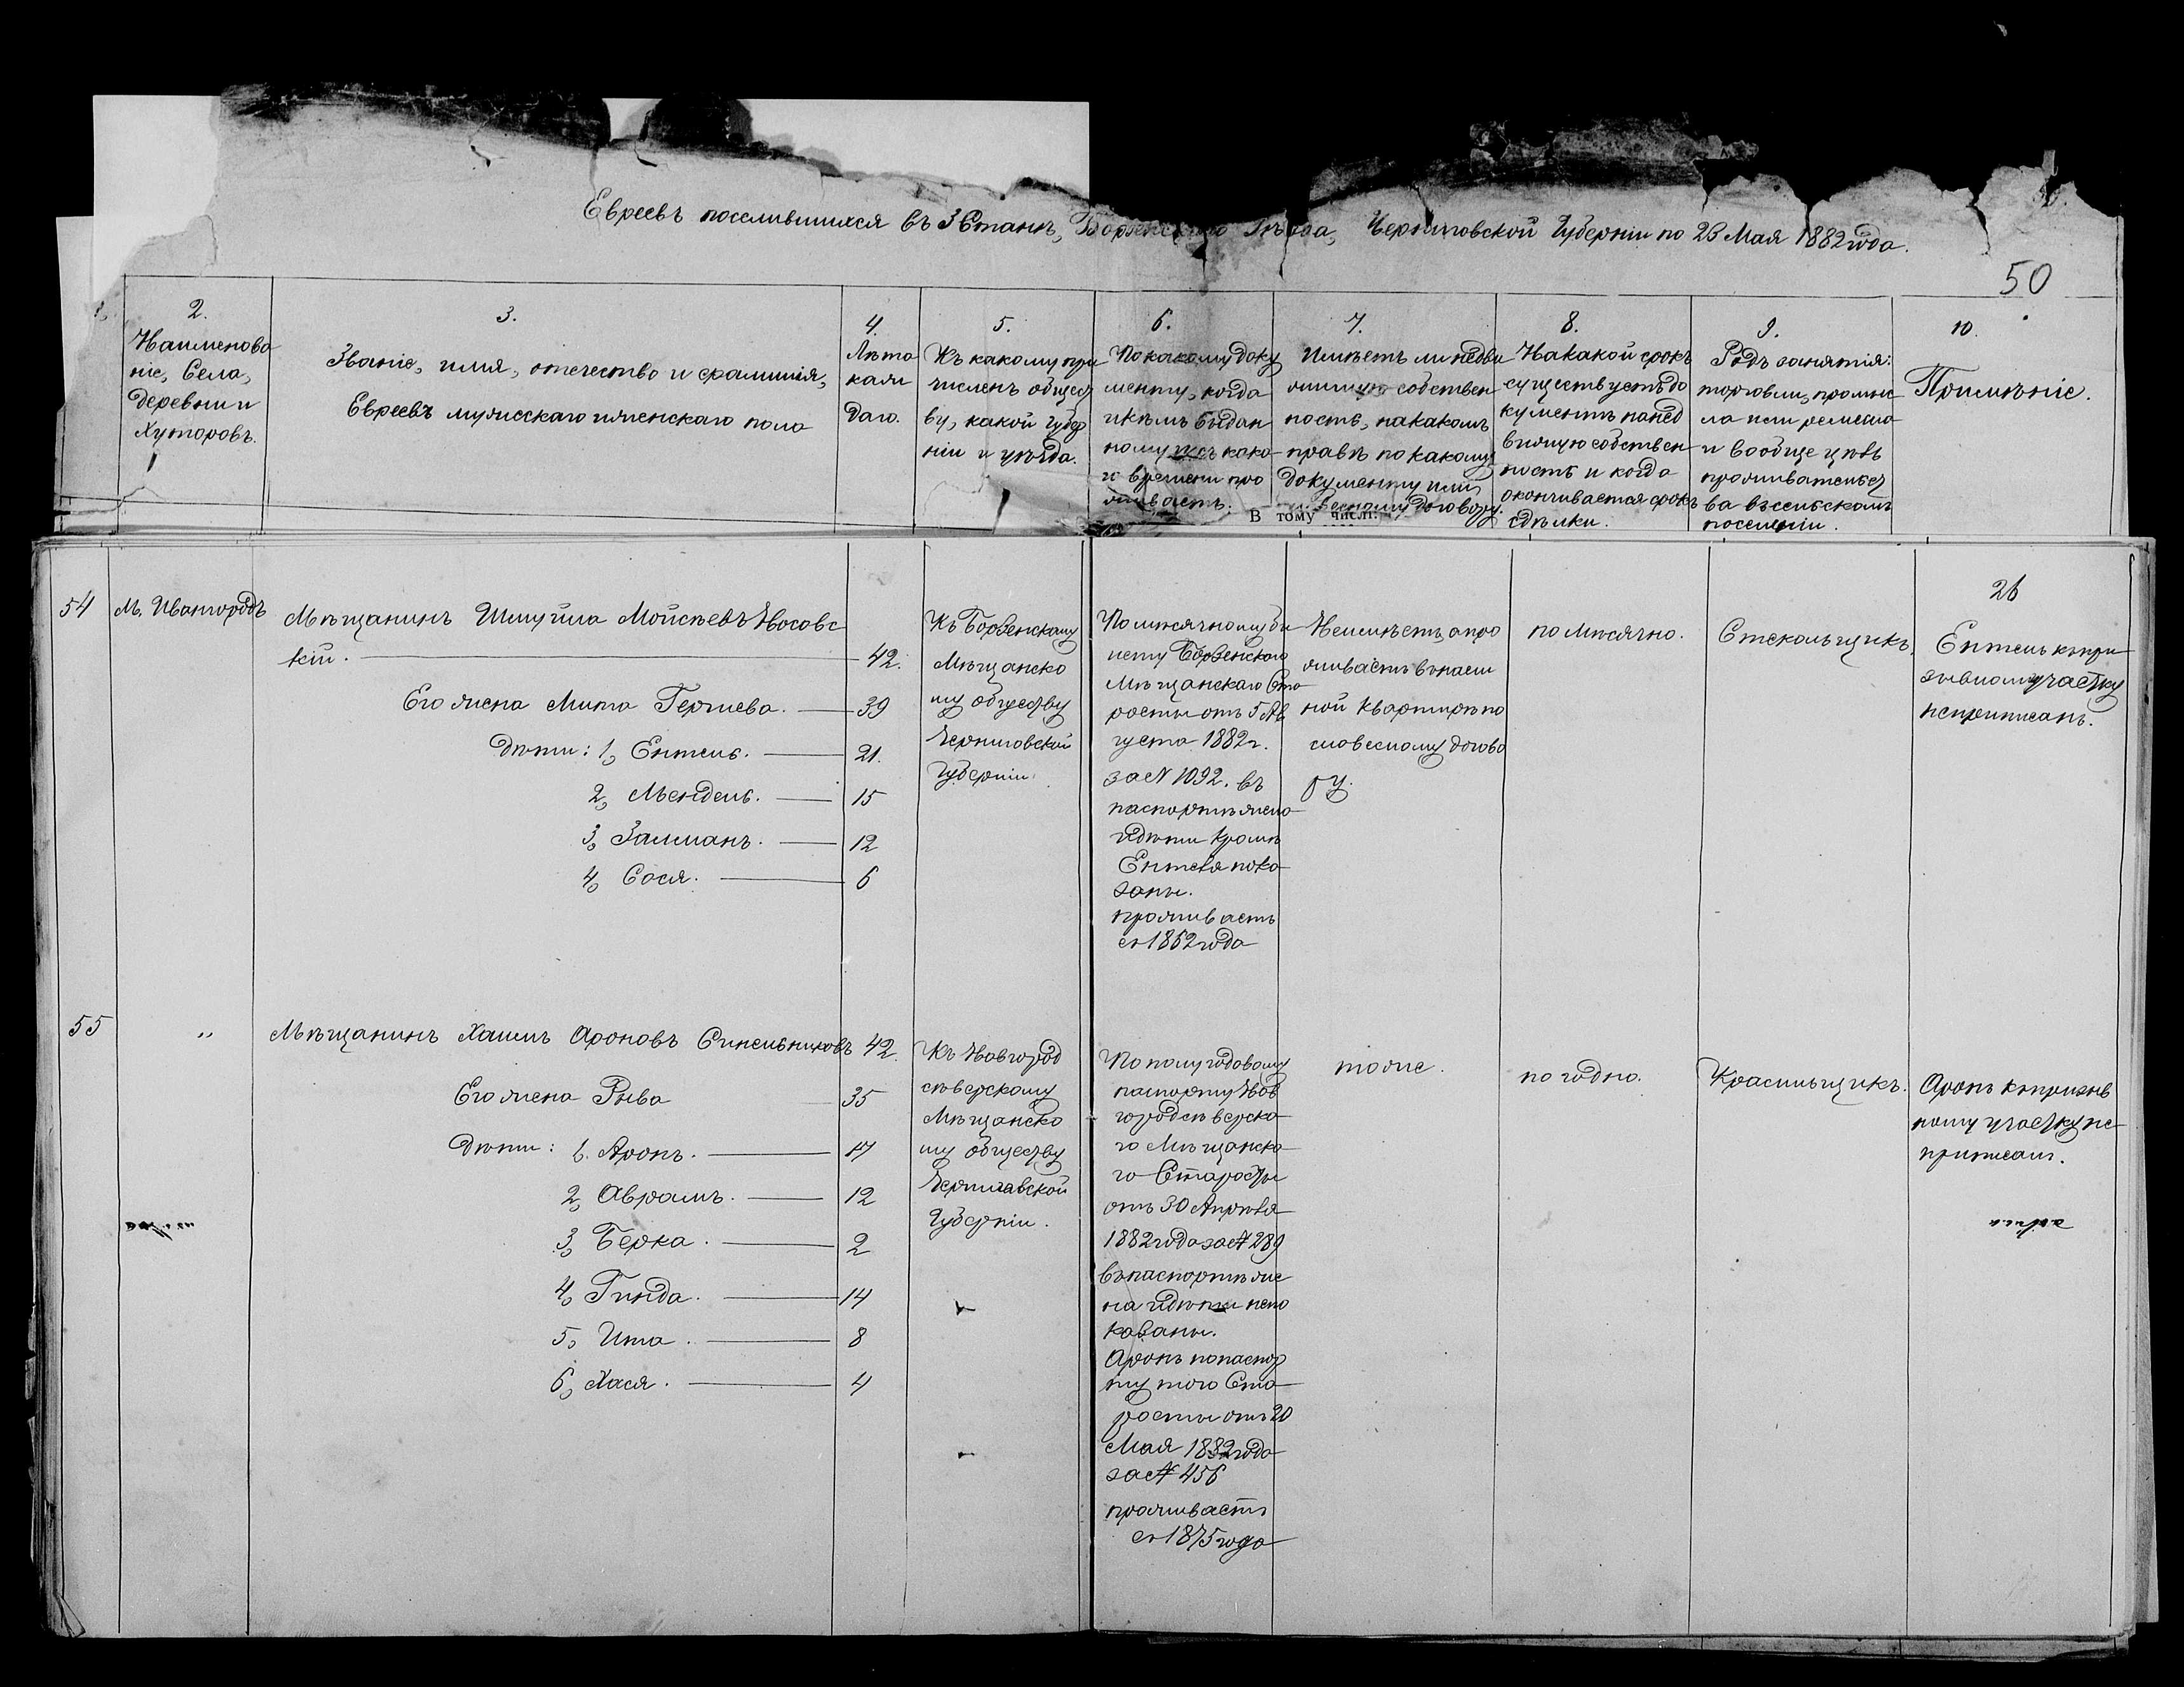 Евреевъ поселившихся въ 3 Станѣ, Борзенскаго Уѣзда, Черниговской Губерніи по 23 Мая 1882 года.
50
2.
Наименова
ніе, Села,
деревни и
Хуторовъ.
3.
Званіе, имя, отечество и фамилія,
Евреевъ мужескаго и женскаго пола
4.
Лѣта
кажи
даго.
5.
Къ какому при
численъ общест
ву, какой губер
ніи и уѣзда.
6.
По какому доку
менту, когда
и кѣмъ выдан
ному и съ како
го времени про
живаетъ.
7.
Имѣетъ ли недви
жимую собствен
ность, на какомъ
правѣ по какому
документу или
словесному договору.
8.
На какой срокъ
существуетъ до
кументъ на нед
вижую собствен
ность и когда
оканчивается срокъ
сдѣлки.
9.
Родъ занятія:
торговли, промыс
ла или ремесла
и вообще цѣль
проживательст
ва въ сельскомъ
поселеніи.
10.
Примѣніе.
В тому числі:
26
54
М. Ивангородъ
Мѣщанинъ Шмуйла Мойсѣевъ Носовс
кій. 42.
Его жена Мита Гершева. 39
Дѣти: 1, Ентель. 21.
2, Мендель. 15
3, Залманъ. 12
4, Сося. 6
Къ Борзенскому
Мѣщанско
му обществу
Черниговской
Губерніи.
По мѣсячному би
лету Борзенскаго
Мѣщанскаго Ста
росты отъ 5 Ав
густа 1882 г.
за № 1092. въ
паспортѣ жена
и дѣти кромѣ
Ентеля пока
заны.
проживаетъ
съ 1862 года
Неимѣетъ, а про
живаетъ въ наем
ной квартирѣ по
словесному догово
ру.
по мѣсячно.
Стекольщикъ.
Ентель къ при
зывному участку
неприписанъ.
55
"
Мѣщанинъ Хаимъ Ароновъ Синельниковъ 42.
Его жена Рыва 35
Дѣти: 1. Аронъ. 17
2, Аврамъ. 12
3, Берка. 2
4, Гинда. 14
5, Ита. 8
6, Хася. 4
Къ Новгород
сѣверскому
Мѣщанско
му обществу
Черниговской
Губерніи.
По полугодовому
паспорту Нов
городсѣверска
го Мѣщанска
го Старосты
отъ 30 Апрѣля
1882 года за № 289
въ паспортѣ же
на и дѣти непо
казаны.
Аронъ по паспор
ту того Ста
росты отъ 20
Мая 1882 года
за № 456
проживаетъ
съ 1875 года
тоже.
по годно.
Красильщикъ.
Аронъ къ призыв
ному участку не
приписанъ.